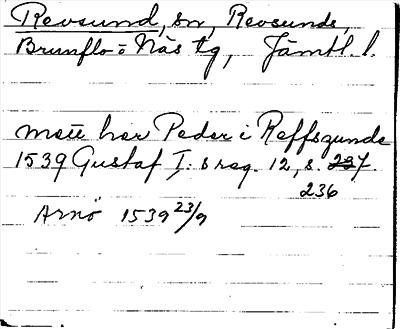 Revsund, sn, Revsunds,
Brunflo o Näs tg, Jämtl. l.
mett her Peder i Reffszunde
1539 Gustaf I:s reg. 12, s. 237.
236
Arnö 1539 23/9